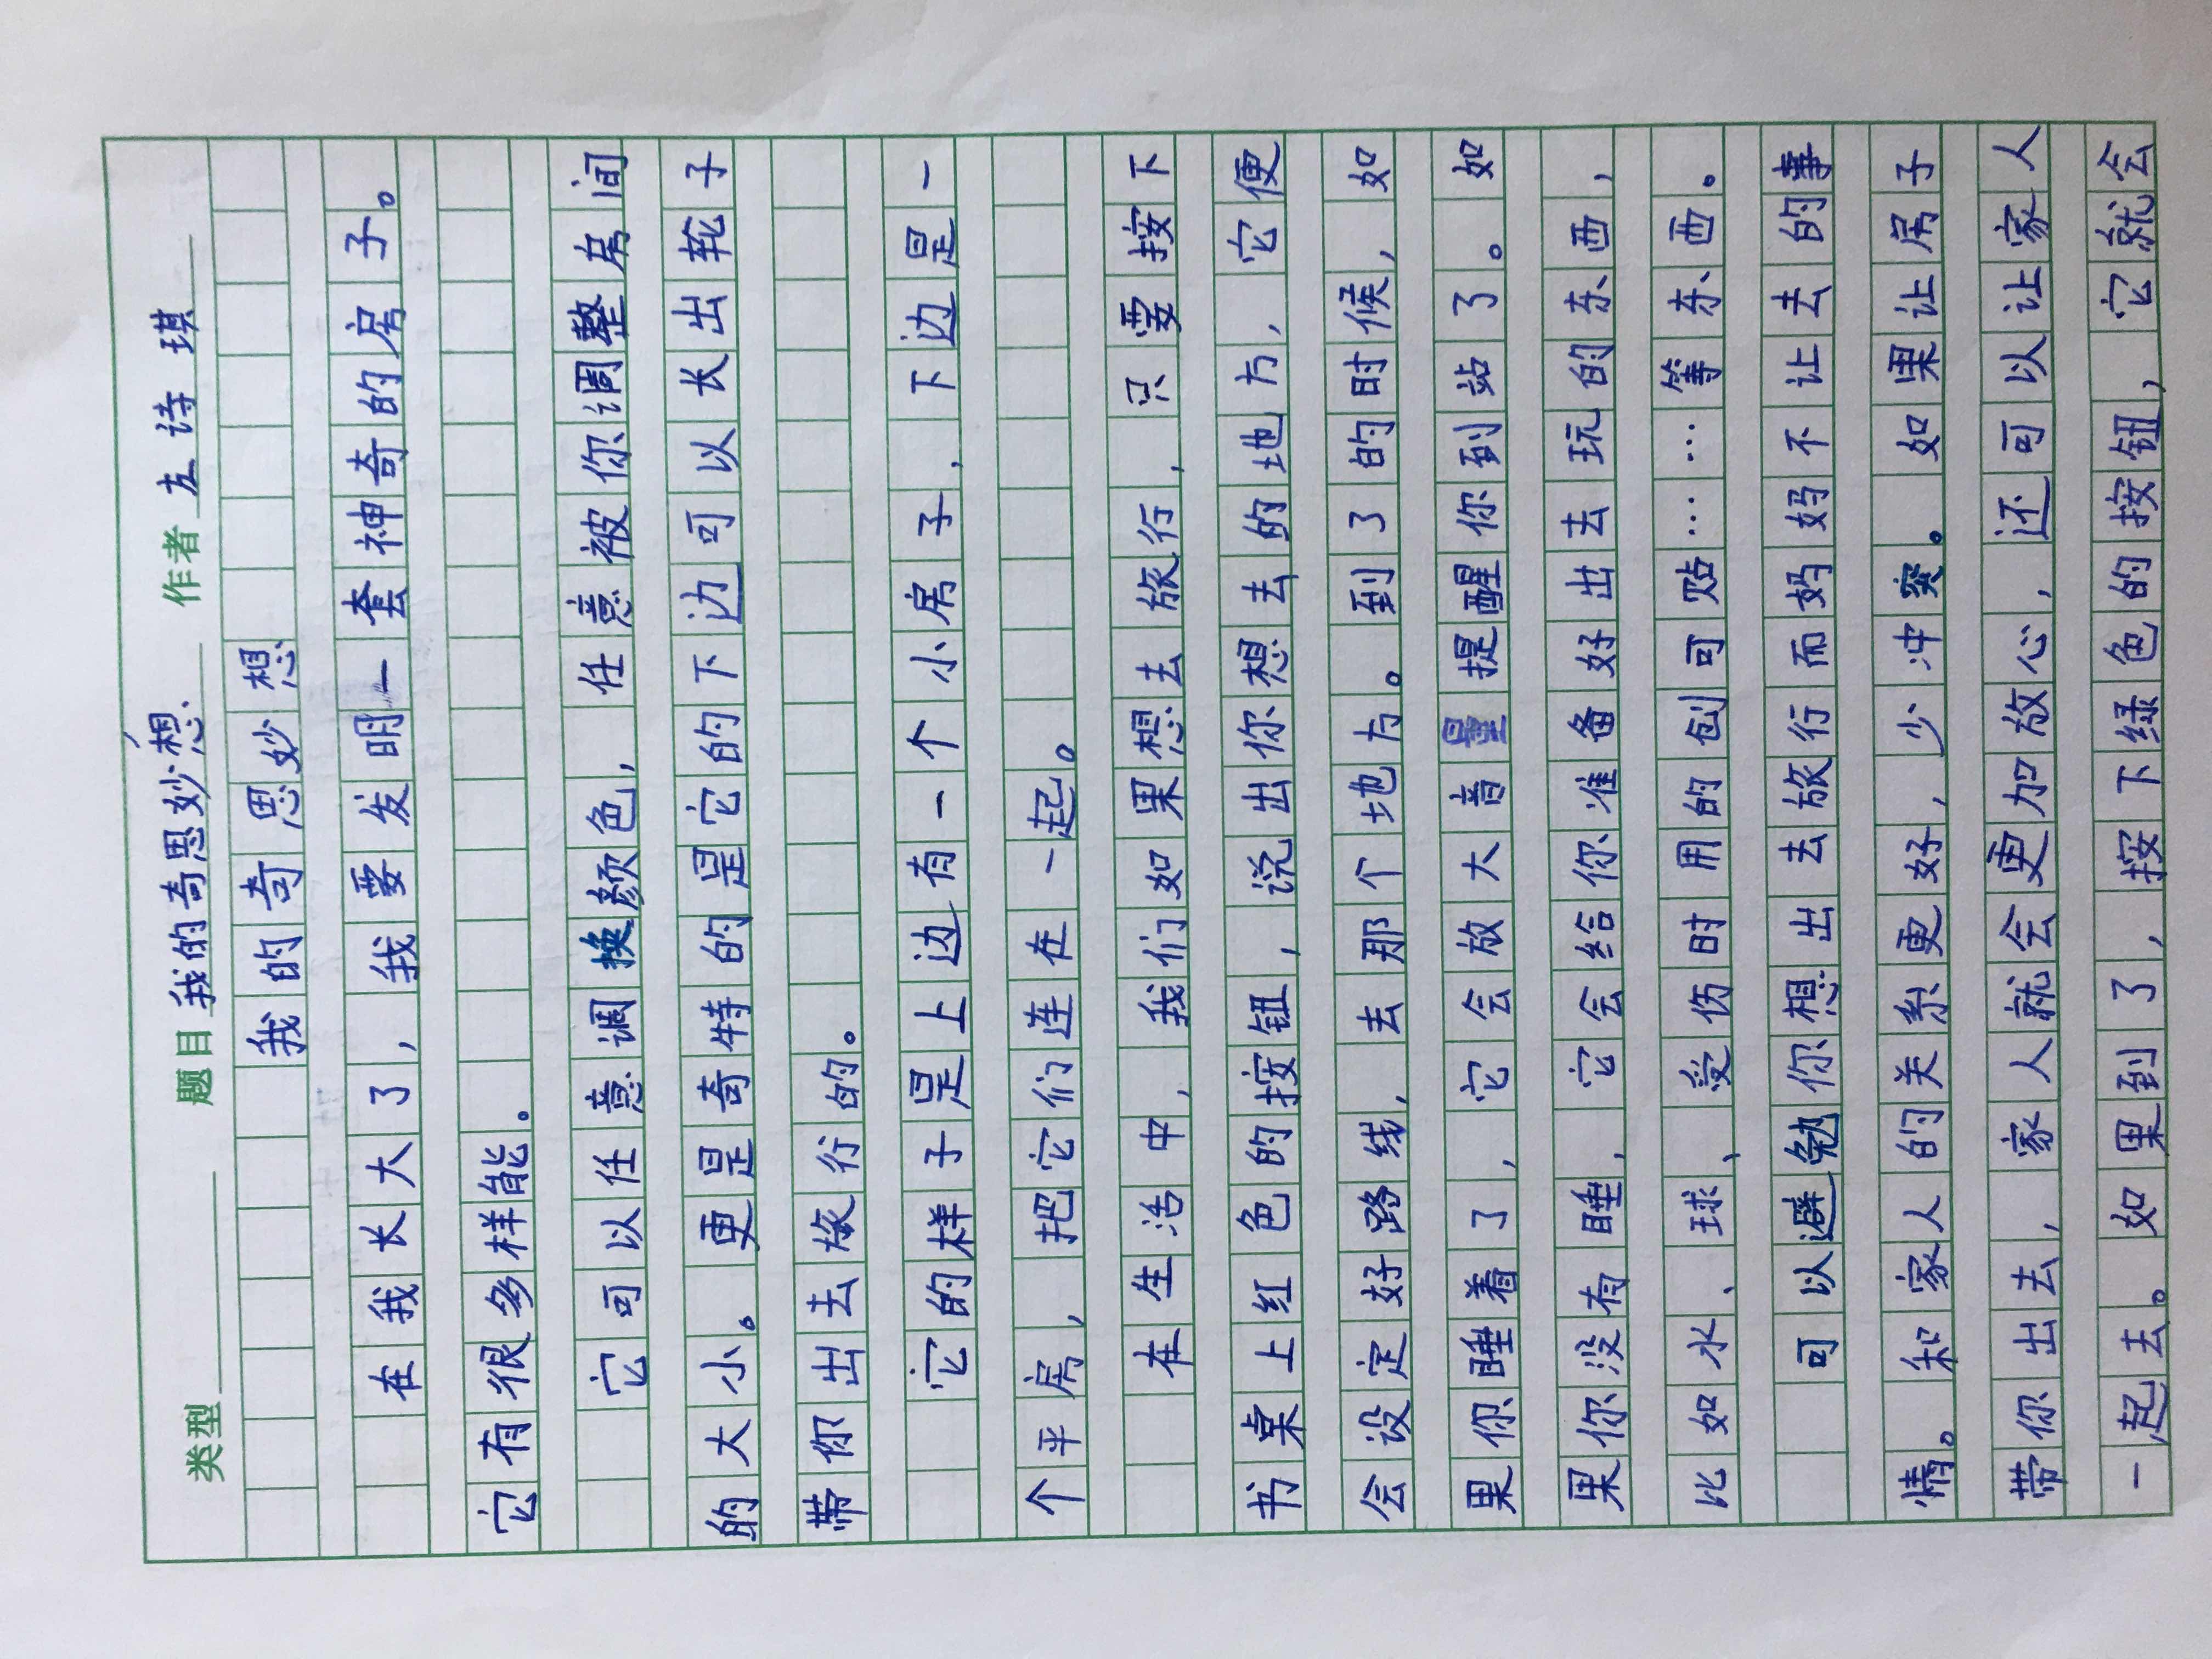 类型 题目 我的奇思妙想 作者 左诗琪
我的奇思妙想
在我长大了，我要发明一套神奇的房子。
它有很多样能。
它可以任意调换颜色，任意被你调整房间
的大小。更是奇特的是它的下边可以长出轮子
带你出去旅行的。
它的样子是上边有一个小房子，下边是一
个平房，把它们连在一起。
在生活中，我们如果想去旅行，只要按下
书桌上红色的按钮，说出你想去的地方，它便
会设定好路线，去那个地方。到了的时候，如
果你睡着了，它会放大音量提醒你到站了。如
果你没有睡，它会给你准备好出去玩的东西，
比如水、球、受伤时用的创可贴……等东西。
可以避勉你想出去旅行而妈妈不让去的事
情。和家人的关系更好，少冲突。如果让房子
带你出去，家人就会更加放心，还可以让家人
一起去。如果到了，按下绿色的按钮，它就会